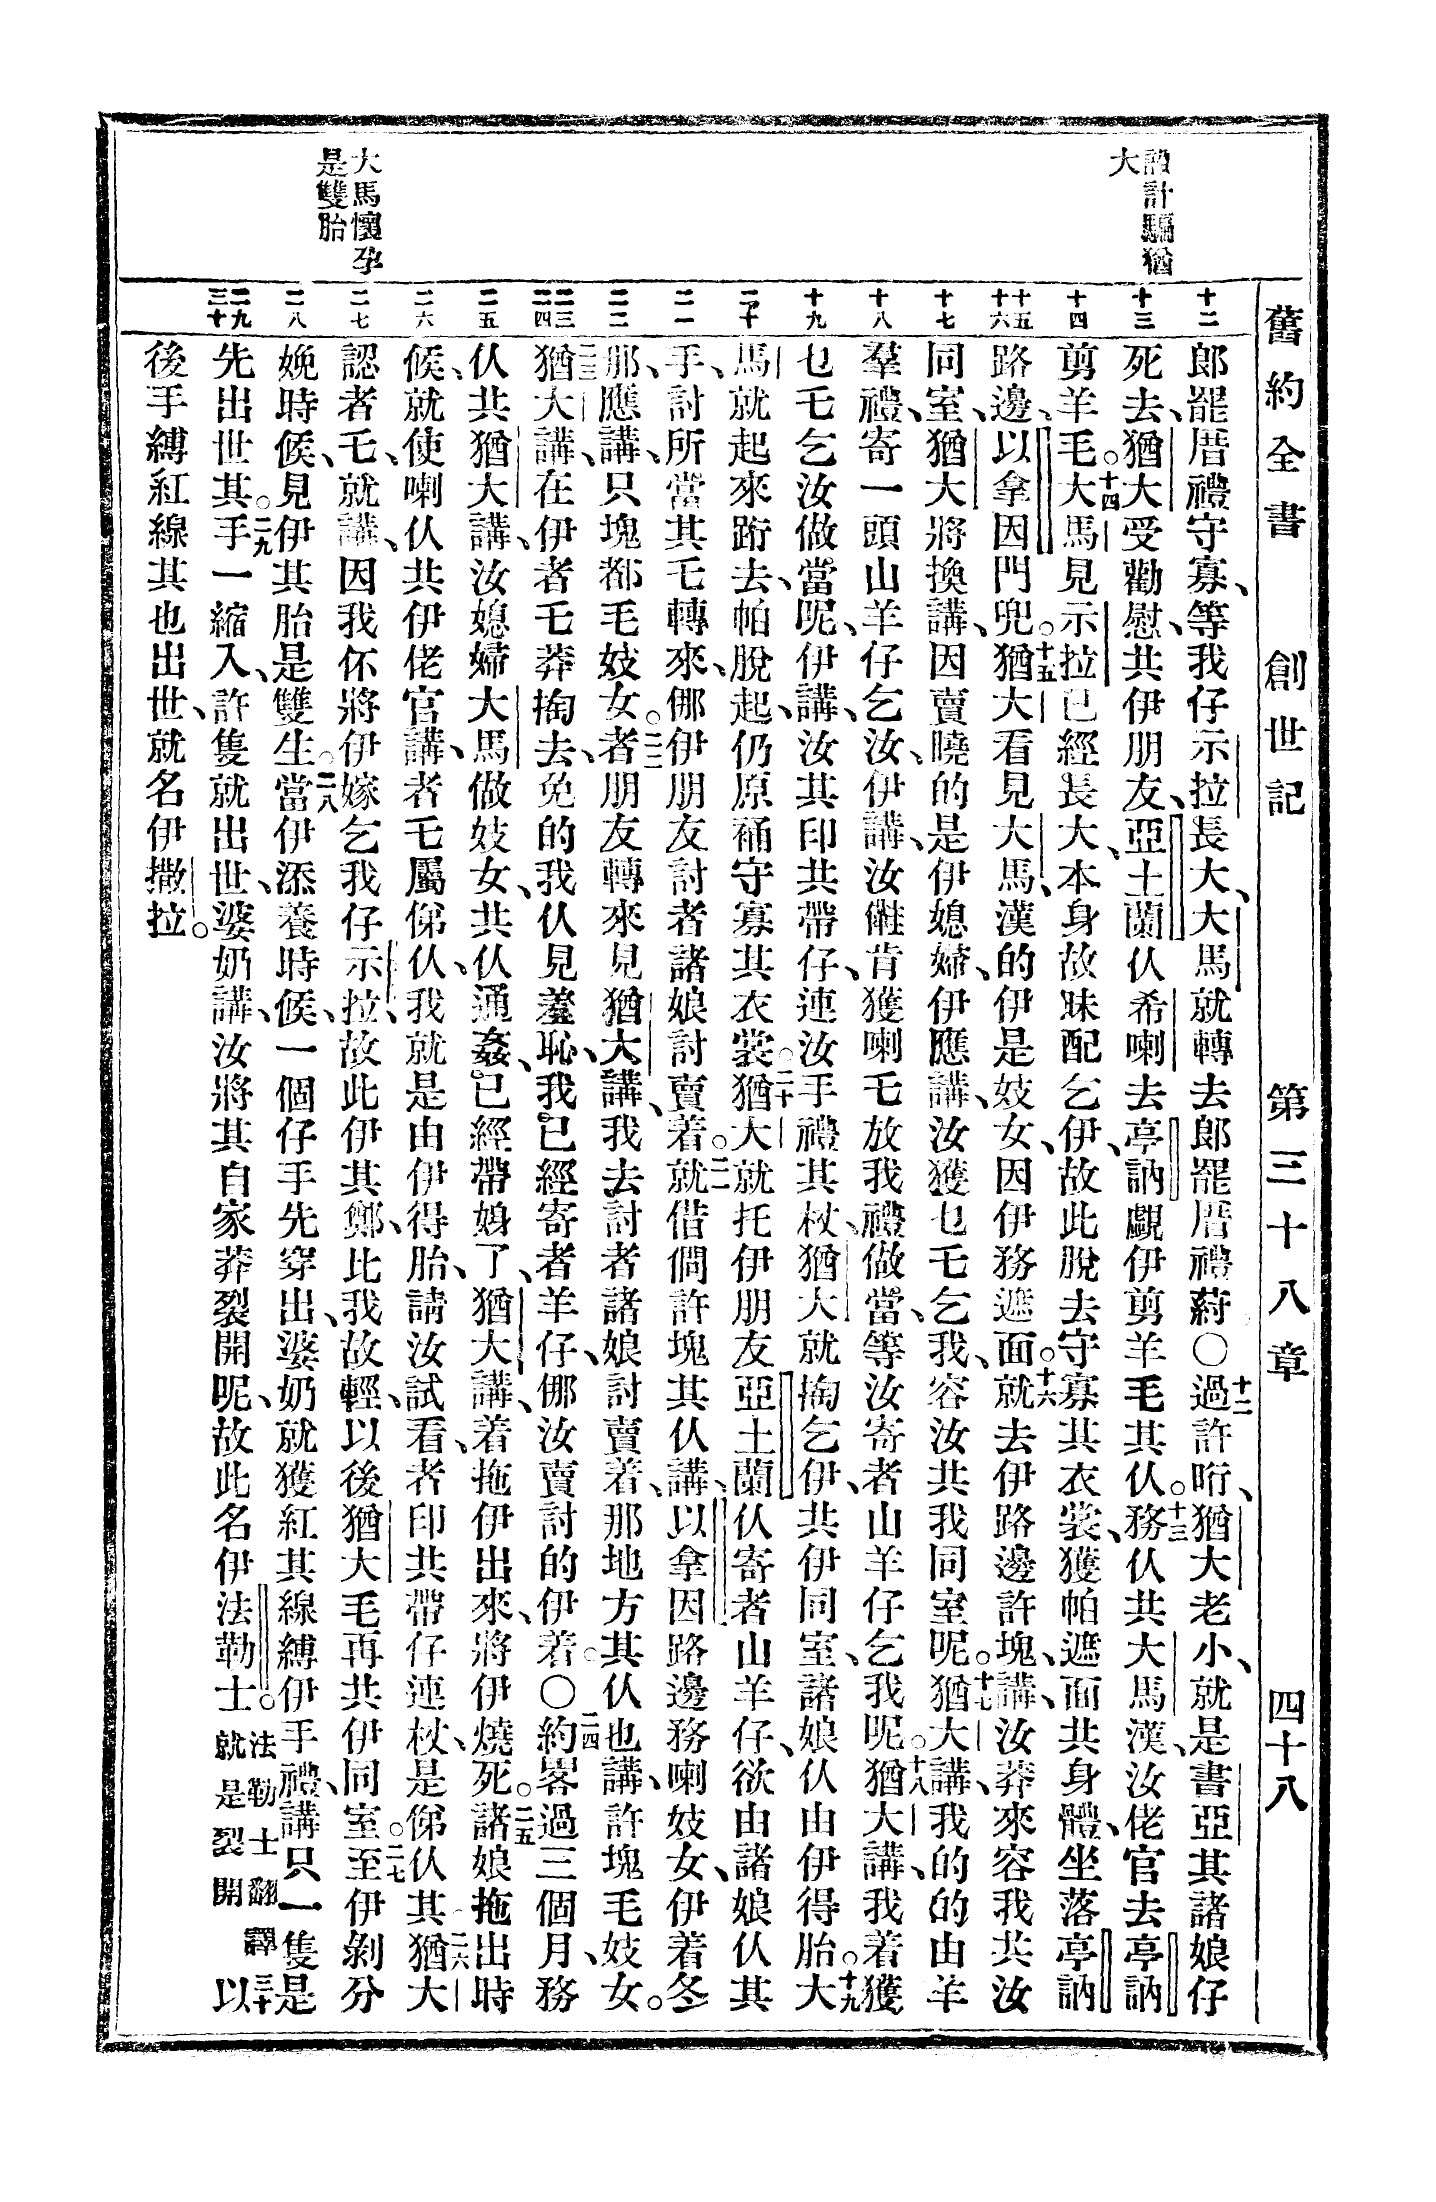 舊約全書　創世記　第三十八章　四十八
設計騙猶
大
大馬懷孕
是雙胎
十二
十三
十四
十五
十六
十七
十八
十九
二十
二一
二二
二三
二四
二五
二六
二七
二八
二九
三十
郎罷厝禮守寡、等我仔示拉長大、大馬就轉去郎罷厝禮蒔○十二過許㫼、猶大老小、就是書亞其諸娘仔
死去、猶大受勸慰、共伊朋友、亞土蘭仈希喇去亭訥覷伊剪羊毛其仈。十三務仈共大馬漢、汝佬官去亭訥
剪羊毛。十四大馬見示拉已經長大、本身故昧配乞伊、故此脫去守寡其衣裳、獲帕遮面共身體、坐落亭訥
路邊、以拿因門兜。十五猶大看見大馬、漢的伊是妓女、因伊務遮面。十六就去伊路邊許塊、講、汝莽來容我共汝
同室、猶大將換講、因賣曉的是伊媳婦、伊應講、汝獲乜乇乞我、容汝共我同室呢。十七猶大講、我的的由羊
羣禮、寄一頭山羊仔乞汝、伊講、汝𣍐肯獲喇乇放我禮做當、等汝寄者山羊仔乞我呢。十八猶大講、我着獲
乜乇乞汝做當呢、伊講、汝其印共帶仔、連汝手禮其杖、猶大就掏乞伊、共伊同室、諸娘仈由伊得胎。十九大
馬就起來跗去、帕脫起、仍原補守寡其衣裳。二十猶大就托伊朋友亞土蘭仈寄者山羊仔、欲由諸娘仈其
手、討所當其乇轉來、倻伊朋友討者諸娘討賣着。二一就借問許塊其仈講、以拿因路邊務喇妓女、伊着冬
那、應講、只塊都毛妓女。二二者朋友轉來見猶大、講、我去討者諸娘討賣着、那地方其仈也講、許塊毛妓女。
二三猶大講、在伊者乇莽掏去、免的我仈見羞恥、我已經寄者羊仔、倻汝賣討的伊着。○二四約畧過三個月、務
仈共猶大講、汝媳婦大馬做妓女、共仈通姦、已經帶娠了、猶大講、着拖伊出來、將伊燒死。二五諸娘拖出時
候、就使喇仈共伊佬官講、者乇屬俤仈、我就是由伊得胎、請汝試看、者印共帶仔連杖、是俤仈其。二六猶大
認者乇、就講、因我伓將伊嫁乞我仔示拉、故此伊其鄭、比我故輕、以後猶大毛再共伊同室。二七至伊剝分
娩時候、見伊其胎是雙生。二八當伊添養時候、一個仔手先穿出、婆奶就獲紅其線縛伊手禮、講、只一隻是
先出世其。二九手一縮入、許隻就出世、婆奶講、汝將其自家莽裂開呢、故此名伊法勒士。法勒士翻譯就是裂開三十以
後手縛紅線其也出世、就名伊撒拉。